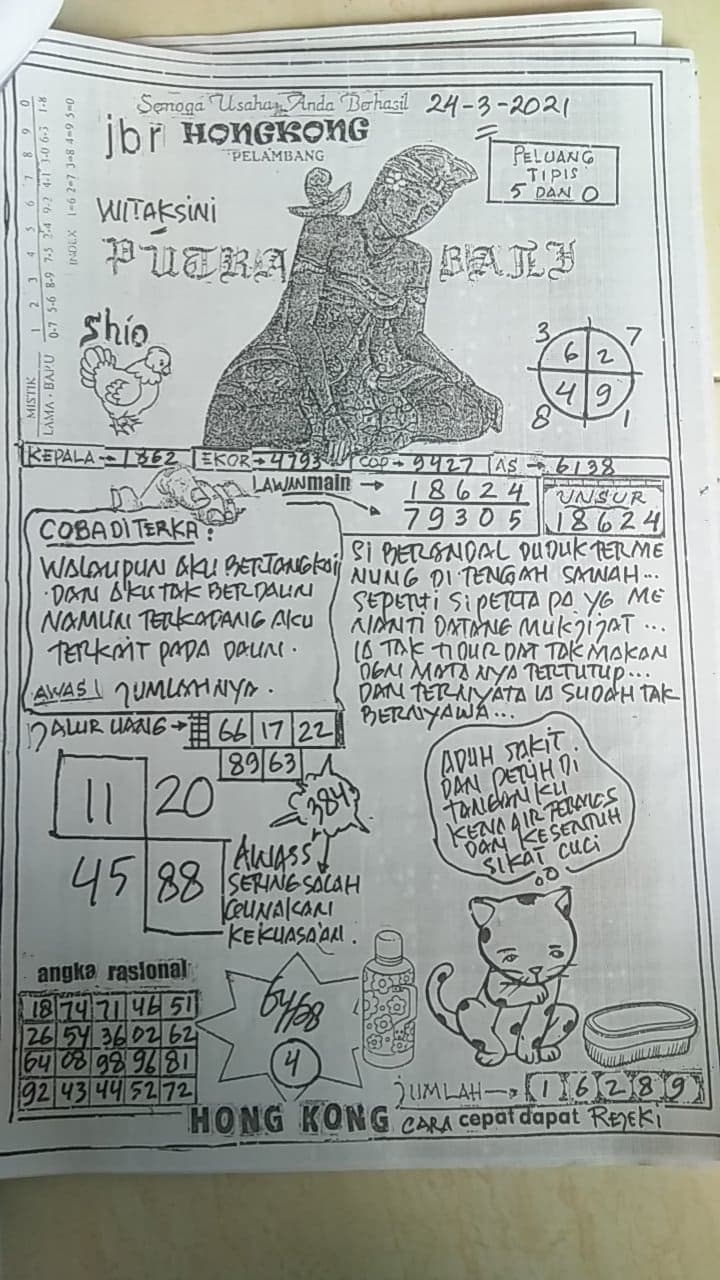 Semoga Usaha Anda Berhasil 24-3-2021
jbr HONGKONG
PELAMBANG
PELUANG
TIPIS
5 DAN 0
WITAKSINI
PUTRA BALY
MISTIK 1 2 3 4 5 6 7 8 9 0
LAMA - BARU 0-7 5-6 8-9 7-5 2-4 9-2 4-1 3-0 6-3 1-8
INDEX 1=6 2=7 3=8 4=9 5=0
Shio
3 7
6 2
4 9
8 1
KEPALA → 1862 EKOR → 4793 COP → 9427 AS → 6138
LAWAN main → 18624
79305
UNSUR
18624
COBA DI TERKA :
WALAUPUN AKU BERTANGKAI
DAN AKU TAK BERDAUN
NAMUN TERKADANG AKU
TERKAIT PADA DAUN.
AWAS! JUMLAHNYA.
SI BERANDAL DUDUK TERME
NUNG DI TENGAH SAWAH...
SEPERTI SI PERTAPA YG ME
NANTI DATANG MUKJIJAT ...
IA TAK TIDUR DAT TAK MAKAN
DGN MATA NYA TERTUTUP...
DAN TERNYATA IA SUDAH TAK
BERNYAWA...
JALUR UANG → 66 17 22
89 63
11 20
45 88
384
AWASS
SERING SALAH
GUNAKAN
KEKUASAAN.
ADUH SAKIT.
DAN PERIH DI
TANGAN KU
KENA AIR TERMOS
DAN KESENTUH
SIKAT CUCI
angka rasional
18 74 71 46 51
26 54 36 02 62
64 08 98 96 81
92 43 44 52 72
64/68
4
JUMLAH → 1 6 2 8 9
HONG KONG CARA cepat dapat REJEKI